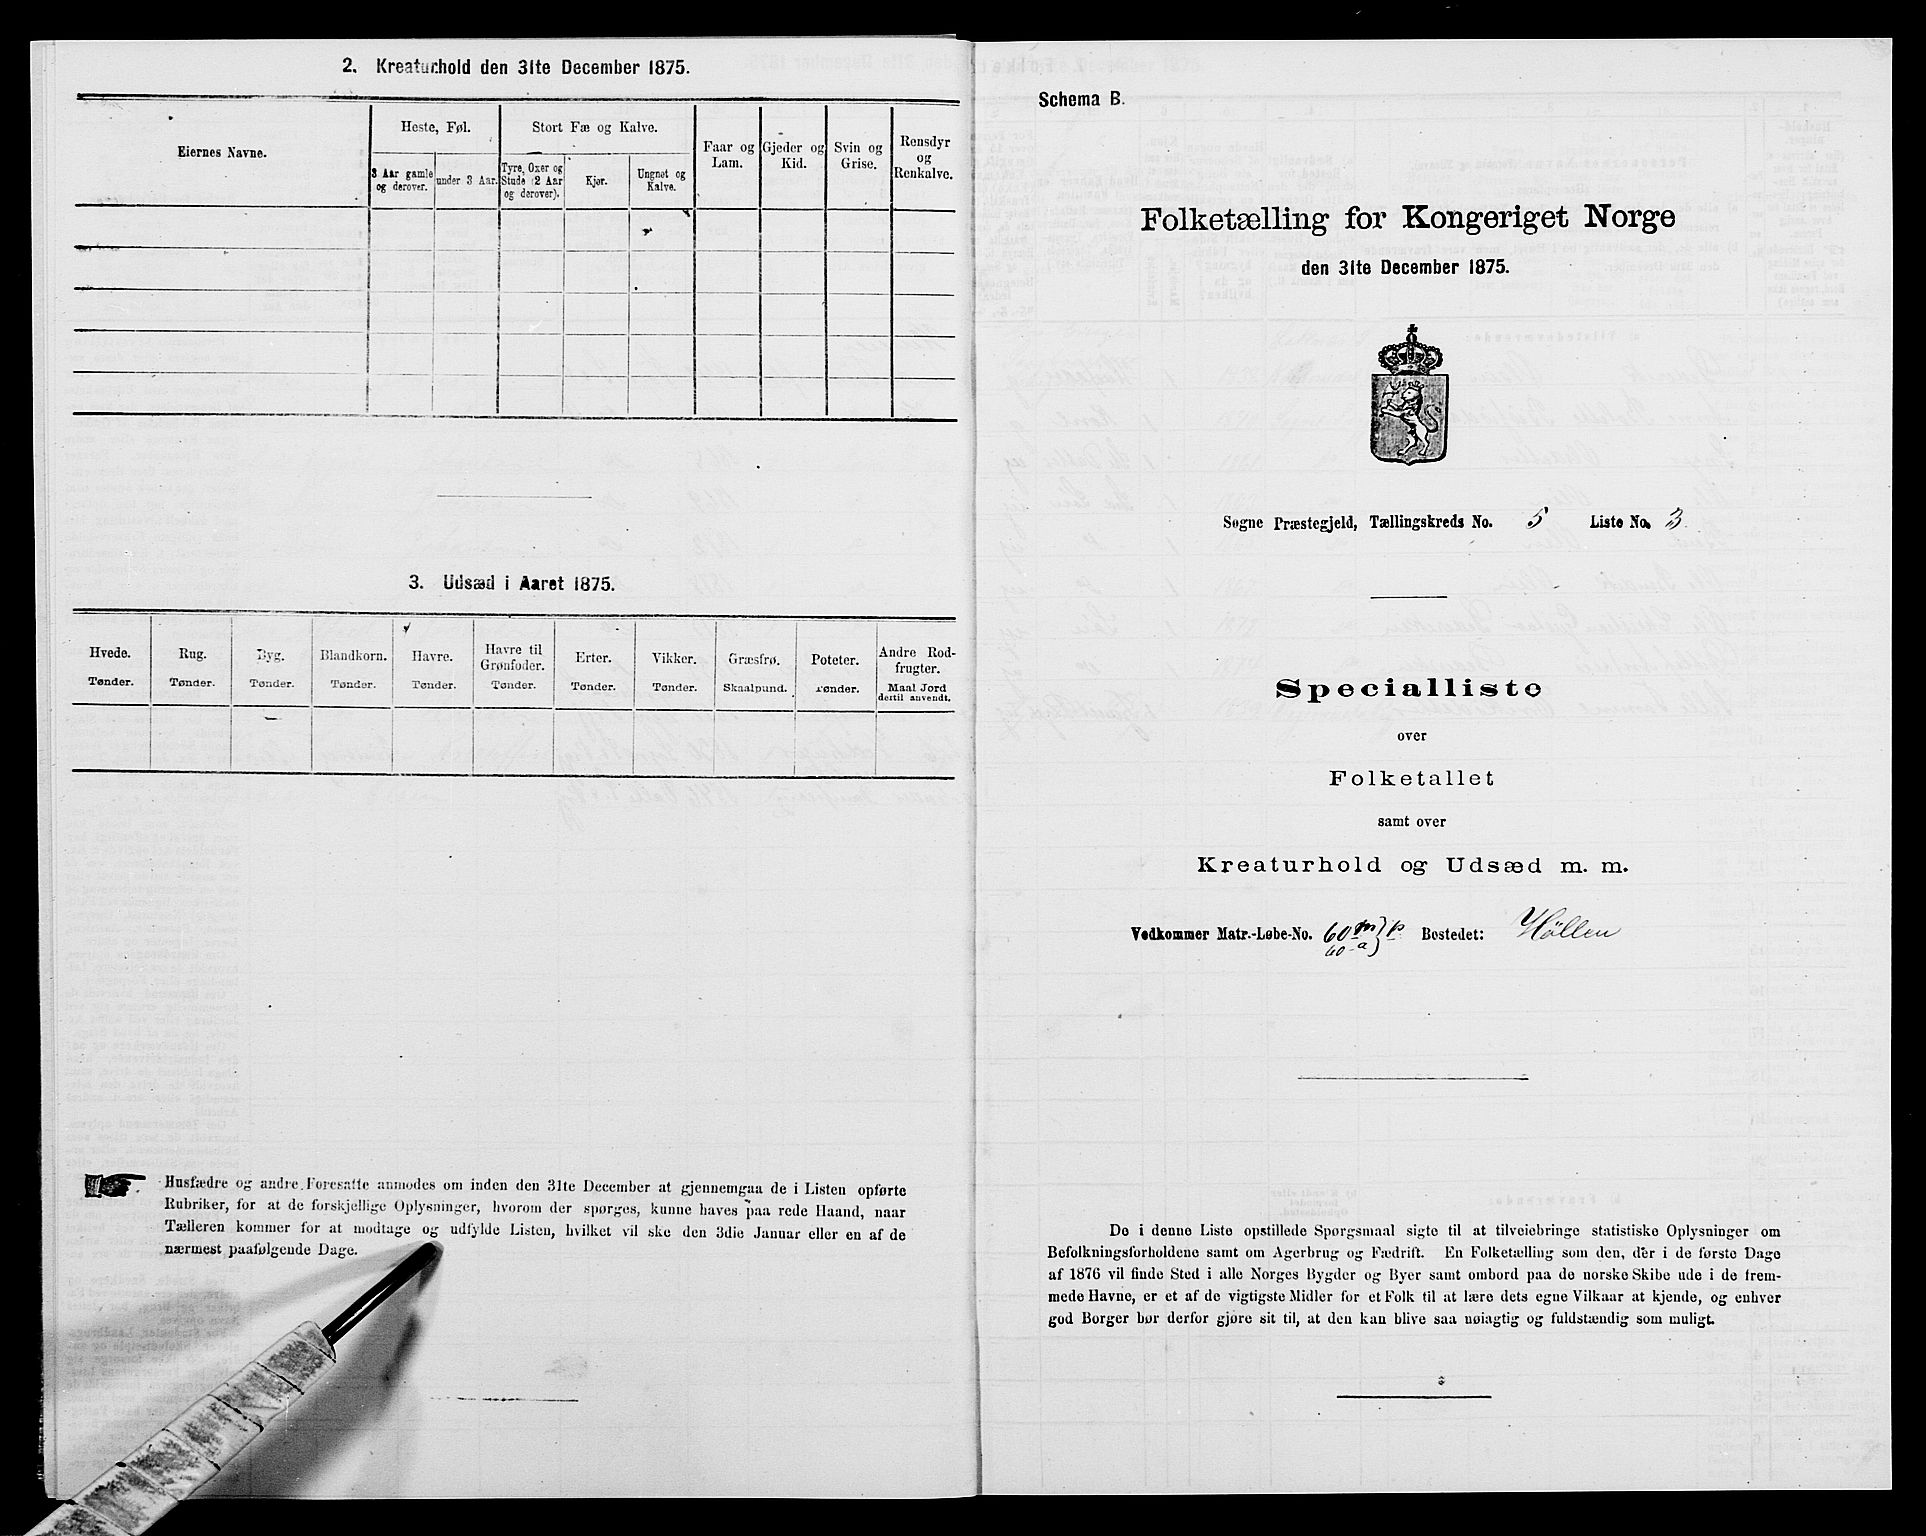 2. Kreaturhold den 31te December 1875.
Eiernes Navne.
Heste, Føl.
3 Aar gamle og derover.
under 3 Aar.
Stort Fæ og Kalve.
Tyre, Oxer og Stude (2 Aar og derover).
Kjør.
Ungnøt og Kalve.
Faar og Lam.
Gjeder og Kid.
Svin og Grise.
Rensdyr og Renkalve.
3. Udsæd i Aaret 1875.
Hvede.
Tønder.
Rug.
Tønder.
Byg.
Tønder.
Blandkorn.
Tønder.
Havre.
Tønder.
Havre til Grønfoder.
Tønder.
Erter.
Tønder.
Vikker.
Tønder.
Græsfrø.
Skaalpund.
Poteter.
Tønder.
Andre Rodfrugter.
Maal Jord dertil anvendt.
Husfædre og andre Foresatte anmodes om inden den 31te December at gjennemgaa de i Listen opførte
Rubriker, for at de forskjellige Oplysninger, hvorom der spørges, kunne haves paa rede Haand, naar
Tælleren kommer for at modtage og udfylde Listen, hvilket vil ske den 3die Januar eller en af de
nærmest paafølgende Dage.
Schema B.
Folketælling for Kongeriget Norge
den 31te December 1875.
Søgne Præstegjeld, Tællingskreds No. 5 Liste No. 3
Specialliste
over
Folketallet
samt over
Kreaturhold og Udsæd m. m.
Vedkommer Matr.-Løbe-No. 60 m) b Bostedet: Høllen
60 a)
De i denne Liste opstillede Spørgsmaal sigte til at tilveiebringe statistiske Oplysninger om
Befolkningsforholdene samt om Agerbrug og Fædrift. En Folketælling som den, der i de første Dage
af 1876 vil finde Sted i alle Norges Bygder og Byer samt ombord paa de norske Skibe ude i de frem-
mede Havne, er et af de vigtigste Midler for et Folk til at lære dets egne Vilkaar at kjende, og enhver
god Borger bør derfor gjøre sit til, at den kan blive saa nøiagtig og fuldstændig som muligt.